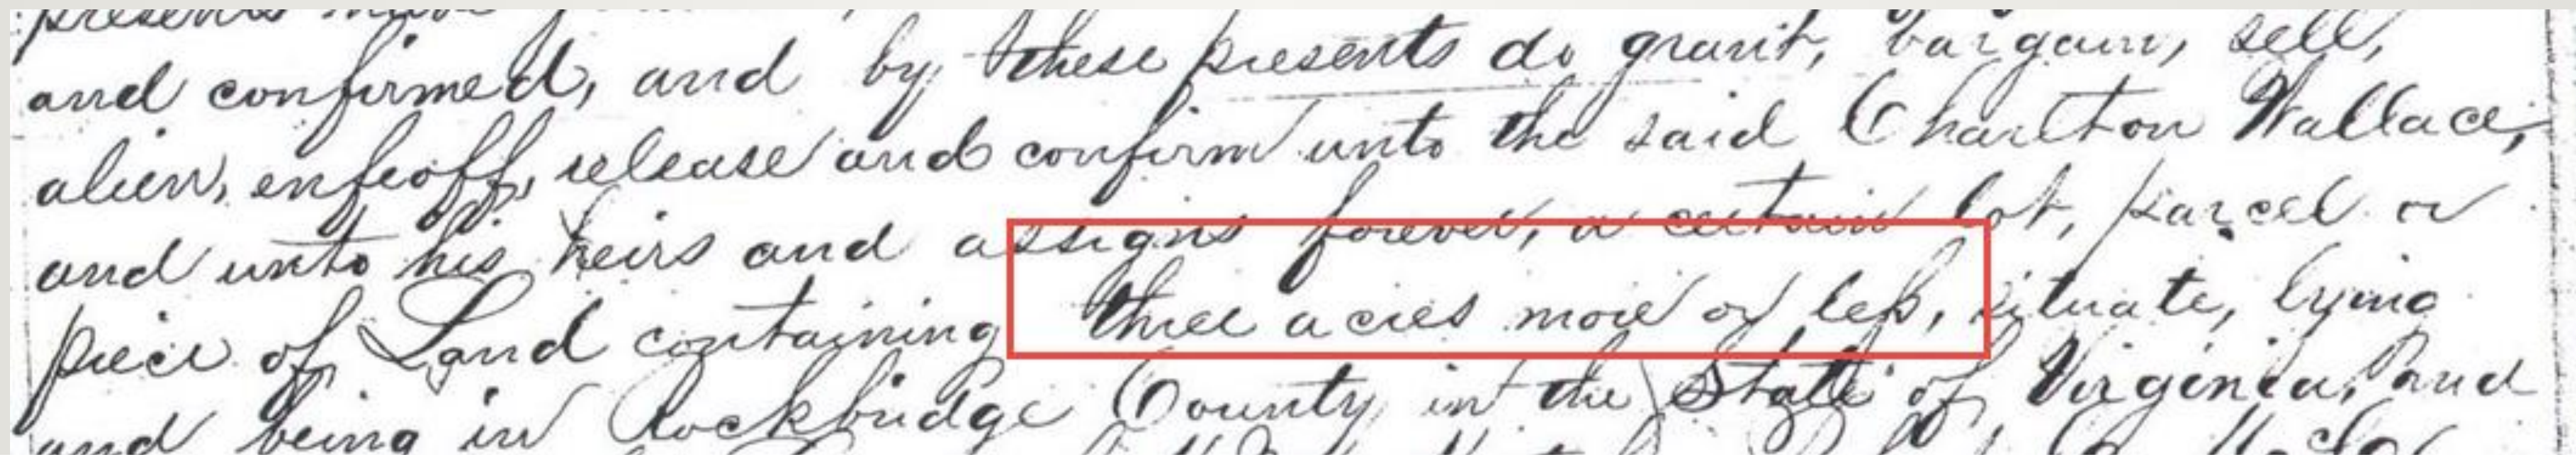 presents
and confirmed, and by these presents do grant, bargain, sell,
alien, enfeoff, release and confirm unto the said Charlton Wallace,
and unto his heirs and assigns forever, a certain lot, parcel or
piece of Land containing three acres more or less, situate, lying
and being in Rockbridge County in the State of Virginia, and